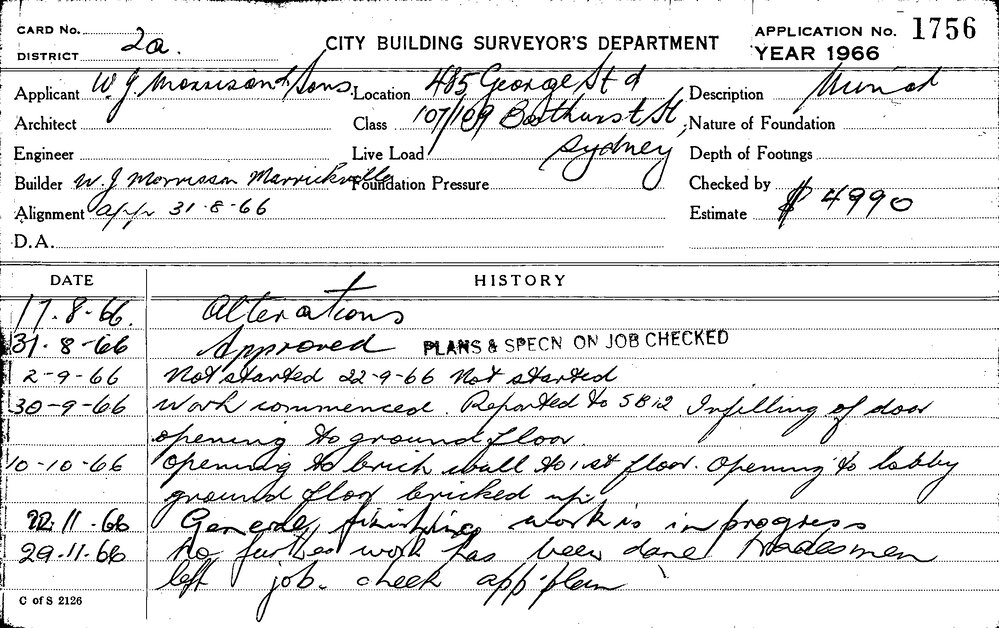 CARD No.
DISTRICT 2a.
CITY BUILDING SURVEYOR'S DEPARTMENT
APPLICATION No. 1756
YEAR 1966
Applicant W. J. Morrison & Sons. Location 485 George St & Description
Architect Class 107/109 Bathurst St, Nature of Foundation
Engineer Live Load Sydney Depth of Footings
Builder W. J Morrison Marrickville Foundation Pressure Checked by
Alignment app 31-8-66 Estimate $ 4990
D.A.
DATE HISTORY
17.8-66. Alterations
31.8-66 Approved PLANS & SPECN ON JOB CHECKED
2-9-66 Not started 22-9-66 Not started
30-9-66 Work commenced. Reported to SB12 Infilling of door
opening to ground floor.
10-10-66 Opening to brick wall to 1st floor. Opening to lobby
ground floor bricked up.
22.11-66 General finishing work is in progress
29.11-66 No further work has been done Tradesmen
left job. check app. plan
C of S 2126